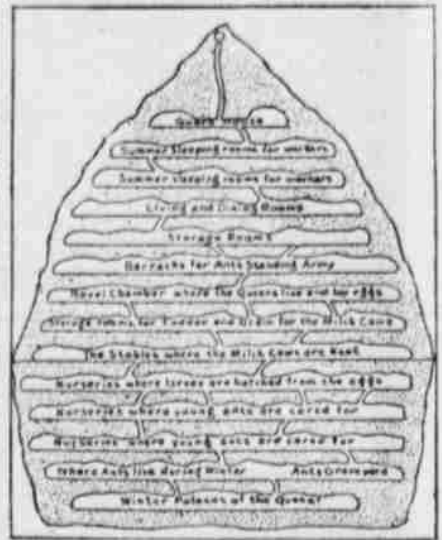 Guard House
Summer Sleeping rooms for workers
Summer sleeping rooms for workers
Living and Dining Rooms
Storage Rooms
Barracks for Ants Standing Army
Royal Chamber where the Queens live and lay eggs
Storage rooms for Fodder and Grain for the Milch Cows
The Stables where the Milch Cows are Kept
Nurseries where larvae are hatched from the eggs
Nurseries where young ants are cared for
Nurseries where young ants are cared for
Where Ants live during Winter Ants Graveyard
Winter Palaces of the Queens